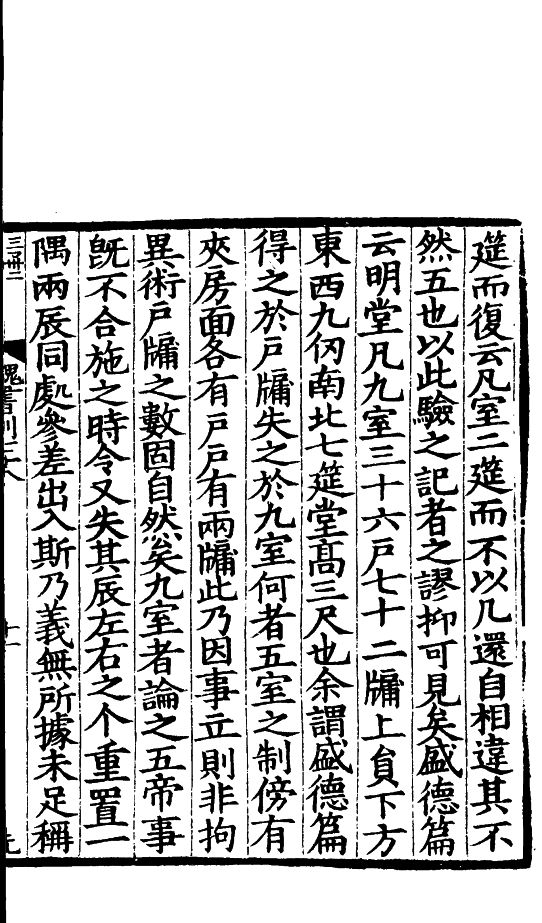 筵而復云凡室二筵而不以几還自相違其不
然五也以此驗之記者之謬抑可見矣盛德篇
云明堂凡九室三十六戶七十二牖上貟下方
東西九仞南北七筵堂高三尺也余謂盛德篇
得之於戶牖失之於九室何者五室之制傍有
夾房面各有戶戶有兩牖此乃因事立則非拘
異術戶牖之數固自然矣九室者論之五帝事
旣不合施之時令又失其辰左右之个重置一
隅兩辰同處參差出入斯乃義無所據未足稱